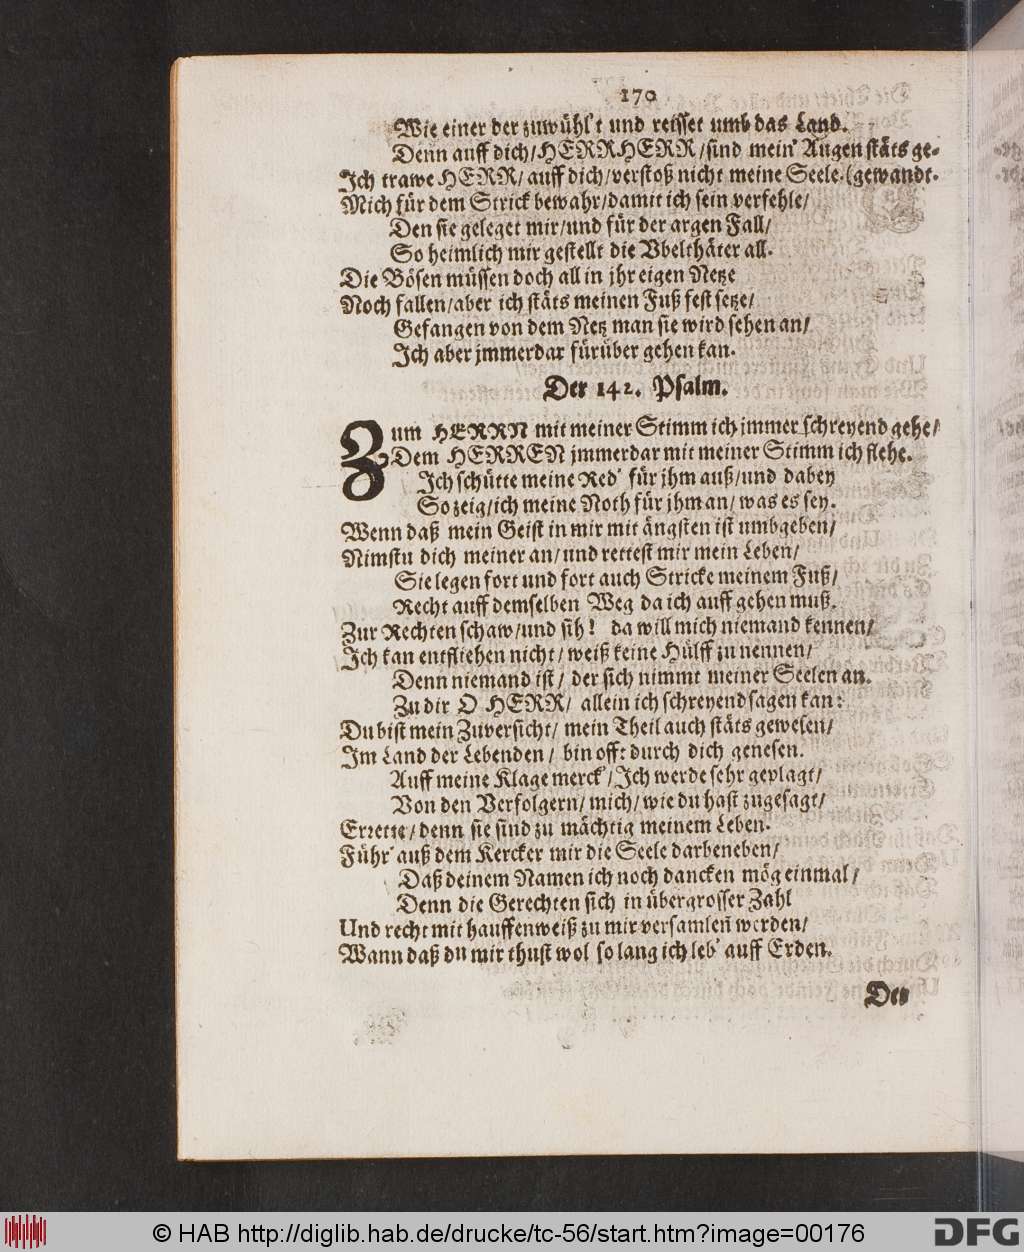 170
Wie einer der zuwühl't und reisset umb das Land.
Denn auff dich/HERRHERR/sind mein' Augen stäts ge-
Ich trawe HERR/ auff dich/verstoß nicht meine Seele.(gewandt.
Mich für dem Strick bewahr/damit ich sein verfehle/
Den sie geleget mir/und für der argen Fall/
So heimlich mir gestellt die Vbelthäter all.
Die Bösen müssen doch all in jhr eigen Netze
Noch fallen/aber ich stäts meinen Fuß fest setze/
Gefangen von dem Netz man sie wird sehen an/
Ich aber jmmerdar fürüber gehen kan.
Der 142. Psalm.
Zum HERRN mit meiner Stimm ich jmmer schreyend gehe/
Dem HERREN jmmerdar mit meiner Stimm ich flehe.
Ich schütte meine Red' für jhm auß/und dabey
So zeig/ich meine Noth für jhm an/ was es sey.
Wenn daß mein Geist in mir mit ängsten ist umbgeben/
Nimstu dich meiner an/und rettest mir mein Leben/
Sie legen fort und fort auch Stricke meinem Fuß/
Recht auff demselben Weg da ich auff gehen muß.
Zur Rechten schaw/und sih! da will mich niemand kennen/
Ich kan entfliehen nicht/ weiß keine Hülff zu nennen/
Denn niemand ist/ der sich nimmt meiner Seelen an.
Zu dir O HERR/ allein ich schreyend sagen kan:
Du bist mein Zuversicht/ mein Theil auch stäts gewesen/
Im Land der Lebenden/ bin offt durch dich genesen.
Auff meine Klage merck'/Ich werde sehr geplagt/
Von den Verfolgern/ mich/ wie du hast zugesagt/
Errette/denn sie sind zu mächtig meinem Leben.
Führ' auß dem Kercker mir die Seele darbeneben/
Daß deinem Namen ich noch dancken mög einmal/
Denn die Gerechten sich in übergrosser Zahl
Und recht mit hauffenweiß zu mir versamleñ werden/
Wann daß du mir thust wol so lang ich leb' auff Erden.
Der
© HAB http://diglib.hab.de/drucke/tc-56/start.htm?image=00176
DFG